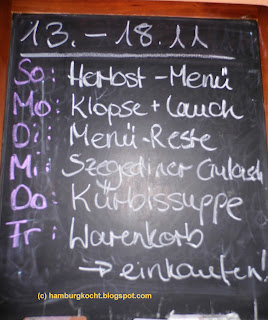 13. - 18.11
So: Herbst-Menü
Mo: Klopse + Lauch
Di: Menü-Reste
Mi: Szegediner Gulasch
Do: Kürbissuppe
Fr: Warenkorb
→ einkaufen!
(c) hamburgkocht.blogspot.com